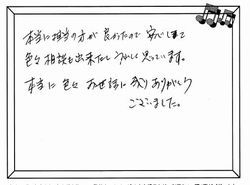 本当に担当の方が良かったので安心しまて
色々相談も出来たしうれしく思っています。
本当に色々お世話に成りありがとう
ございました。